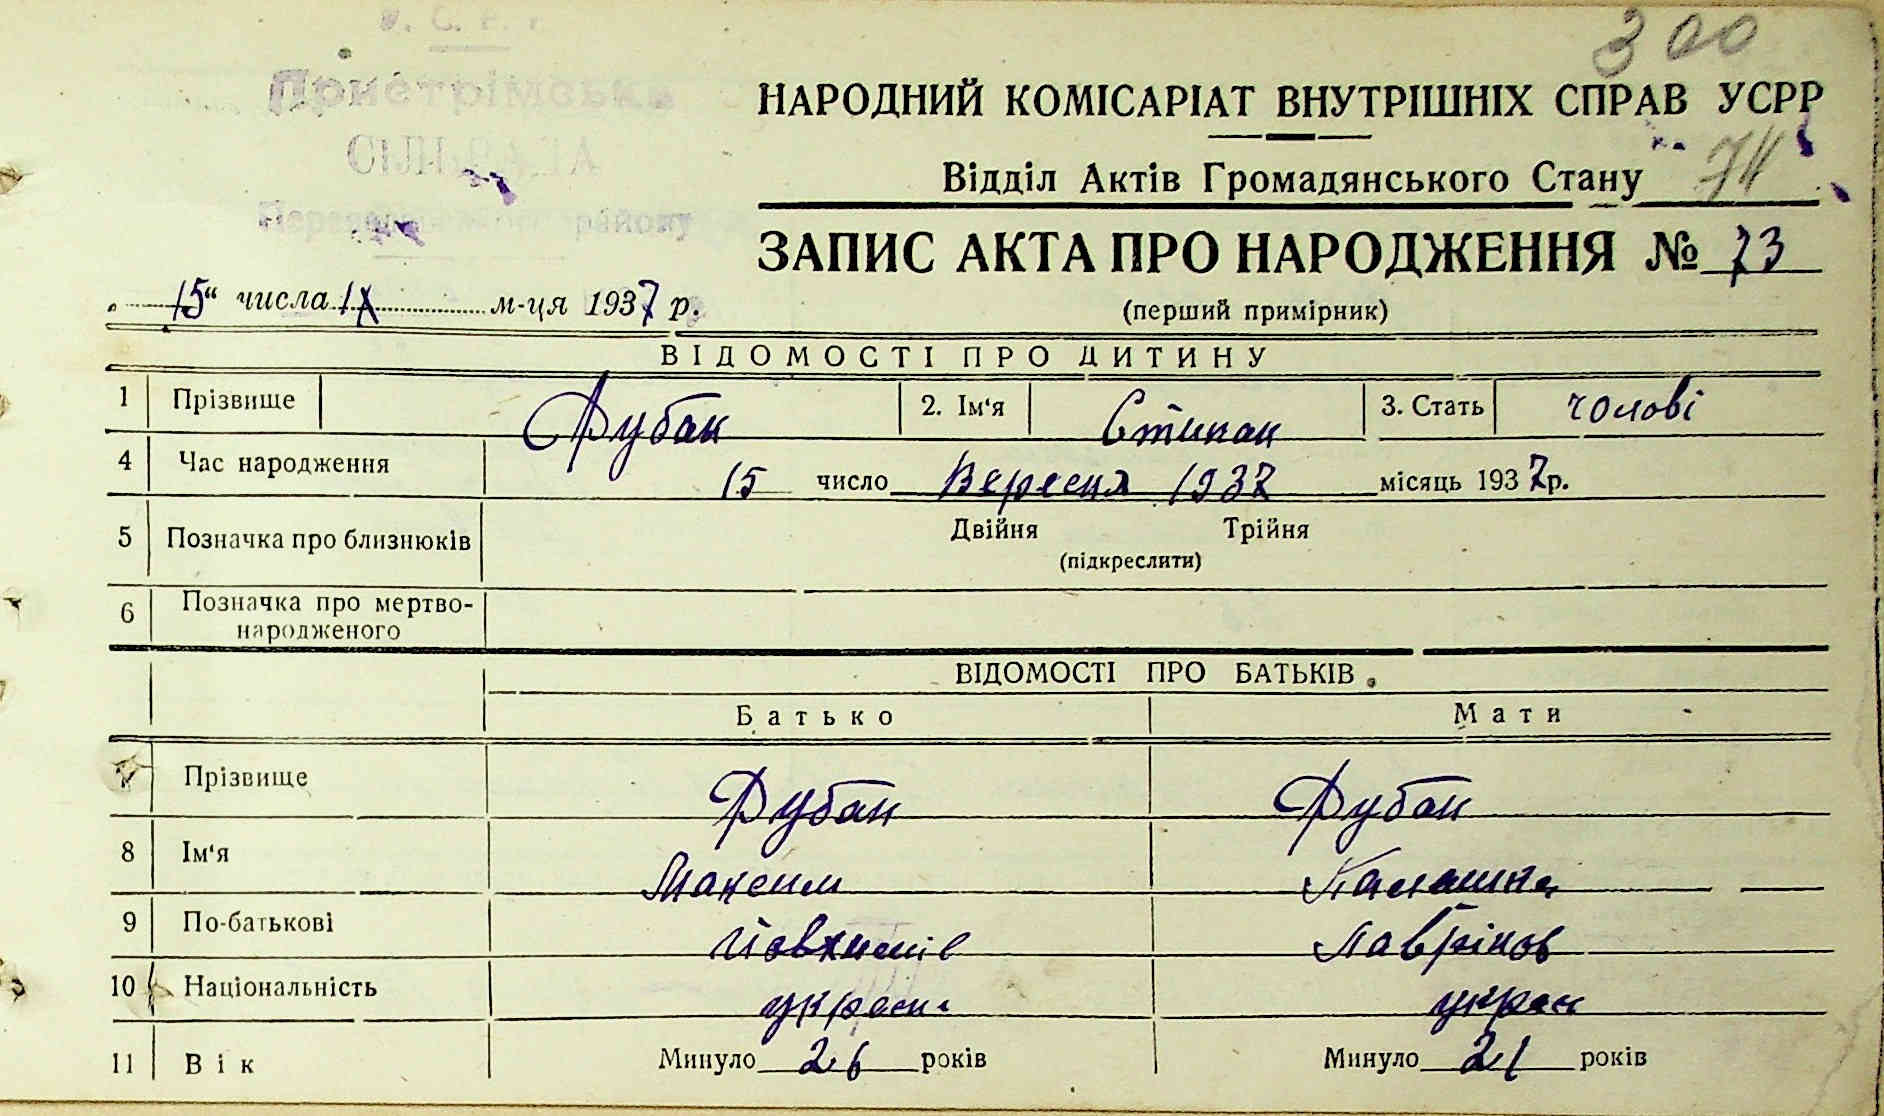 У. С. Р. Р.
300
Пристрімська
СІЛЬРАДА
району
НАРОДНИЙ КОМІСАРІАТ ВНУТРІШНІХ СПРАВ УСРР
Відділ Актів Громадянського Стану 74
ЗАПИС АКТА ПРО НАРОДЖЕННЯ № 73
„15“ числа IX м-ця 1937 р.
(перший примірник)
ВІДОМОСТІ ПРО ДИТИНУ
1 Прізвище Рубан 2. Ім‘я Стипан 3. Стать чолові
4 Час народження 15 число Вересня 1937 місяць 1937 р.
5 Позначка про близнюків Двійня Трійня
(підкреслити)
6 Позначка про мертво-
народженого
ВІДОМОСТІ ПРО БАТЬКІВ
Батько Мати
7 Прізвище Рубан Рубан
8 Ім‘я Максим
9 По-батькові Йовхимів Лаврінов
10 Національність украін укран
11 Вік Минуло 26 років Минуло 21 років